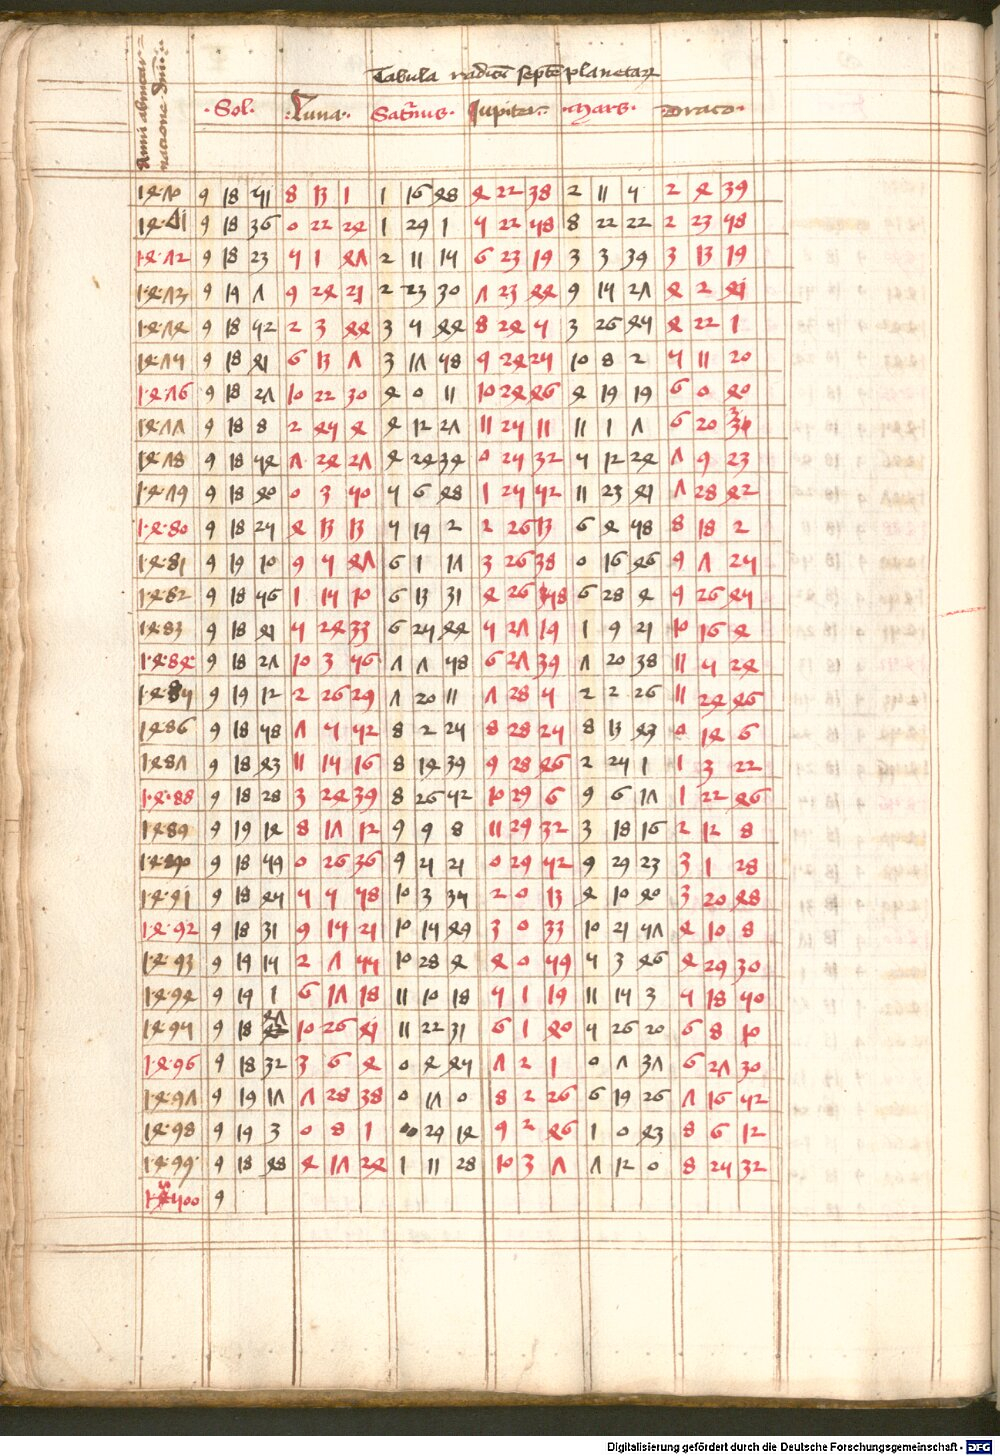 Tabula radicum septem planetarum
Anni ab incarnacione domini
Sol. Luna. Saturnus. Jupiter. Mars. Draco.
1470 9 18 51 8 13 1 1 16 48 4 22 38 2 11 5 2 4 39
1471 9 18 36 0 22 24 1 29 1 5 22 58 8 22 22 2 23 58
1472 9 18 23 5 1 47 2 11 15 6 23 19 3 3 39 3 13 19
1473 9 19 7 9 24 21 2 23 30 7 23 44 9 15 27 4 2 41
1474 9 18 52 2 3 44 3 5 44 8 24 5 3 26 45 4 22 1
1475 9 18 41 6 13 7 3 17 58 9 24 25 10 8 2 5 11 20
1476 9 18 27 10 22 30 4 0 11 10 24 46 4 19 19 6 0 40
1477 9 18 8 2 45 4 4 12 27 11 25 11 11 1 7 6 20
1478 9 18 54 7 24 27 4 24 34 0 25 32 5 12 24 7 9 23
1479 9 18 40 0 3 50 5 6 48 1 25 52 11 23 41 7 28 42
1480 9 18 25 4 13 13 5 19 2 2 26 13 6 4 58 8 18 2
1481 9 19 10 9 5 47 6 1 17 3 26 38 0 16 46 9 7 25
1482 9 18 56 1 15 10 6 13 31 4 26 58 6 28 4 9 26 45
1483 9 18 41 5 24 33 6 25 44 5 27 19 1 9 21 10 16 4
1484 9 18 27 10 3 56 7 7 58 6 27 39 7 20 38 11 5 24
1485 9 19 12 2 26 29 7 20 11 7 28 5 2 2 26 11 24 46
1486 9 18 58 7 5 52 8 2 25 8 28 25 8 13 43 0 14 6
1487 9 18 43 11 15 16 8 14 39 9 28 46 2 25 1 1 3 22
1488 9 18 28 3 24 39 8 26 52 10 29 6 9 6 17 1 22 46
1489 9 19 14 8 17 12 9 9 8 11 29 32 3 18 16 2 12 8
1490 9 18 59 0 26 36 9 21 21 0 29 52 9 29 23 3 1 28
1491 9 18 45 5 5 58 10 3 35 2 0 13 4 10 40 3 20 48
1492 9 18 31 9 15 21 10 15 49 3 0 33 10 21 57 4 10 8
1493 9 19 15 2 7 55 10 28 4 4 0 59 5 3 46 4 29 30
1494 9 19 1 6 17 18 11 10 18 5 1 19 11 15 3 5 18 50
1495 9 18 47 10 26 41 11 22 31 6 1 40 5 26 20 6 8 10
1496 9 18 32 3 6 4 0 4 45 7 2 1 0 7 37 6 27 30
1497 9 19 17 7 28 38 0 17 0 8 2 26 6 19 26 7 16 52
1498 9 19 3 0 8 1 0 29 14 9 2 46 1 0 43 8 6 12
1499 9 18 48 4 17 24 1 11 28 10 3 7 7 12 0 8 25 32
1500 9
Digitalisierung gefördert durch die Deutsche Forschungsgemeinschaft - DFG